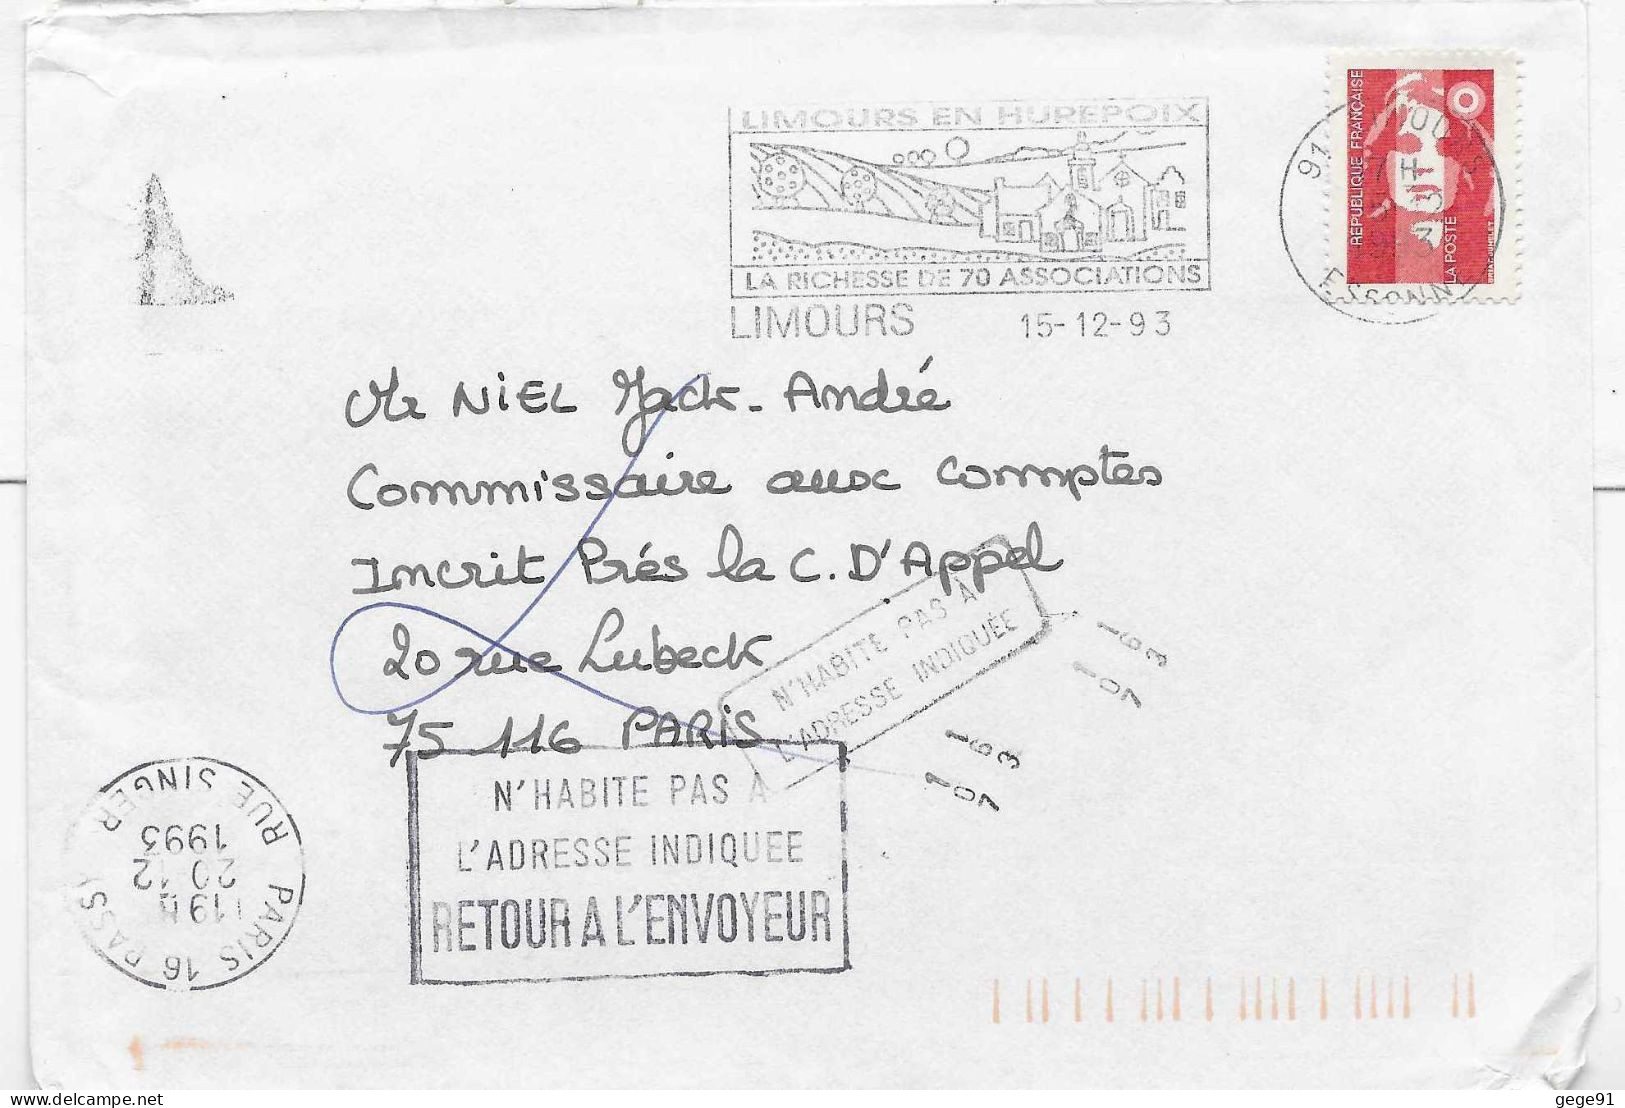 LIMOURS EN HUREPOIX
LA RICHESSE DE 70 ASSOCIATIONS
LIMOURS 15-12-93
RÉPUBLIQUE FRANÇAISE
LA POSTE
91
7 H
ESSONNE
Mr NIEL Jack-André
Commissaire aux Comptes
Incrit Prés la C.D'Appel
20 rue Lubeck
75 116 PARIS
N'HABITE PAS À
L'ADRESSE INDIQUÉE
163
107
163
107
N'HABITE PAS A
L'ADRESSE INDIQUEE
RETOUR A L'ENVOYEUR
PARIS 16 PASSY
RUE SINGER
19H
20 12
1993
gege91